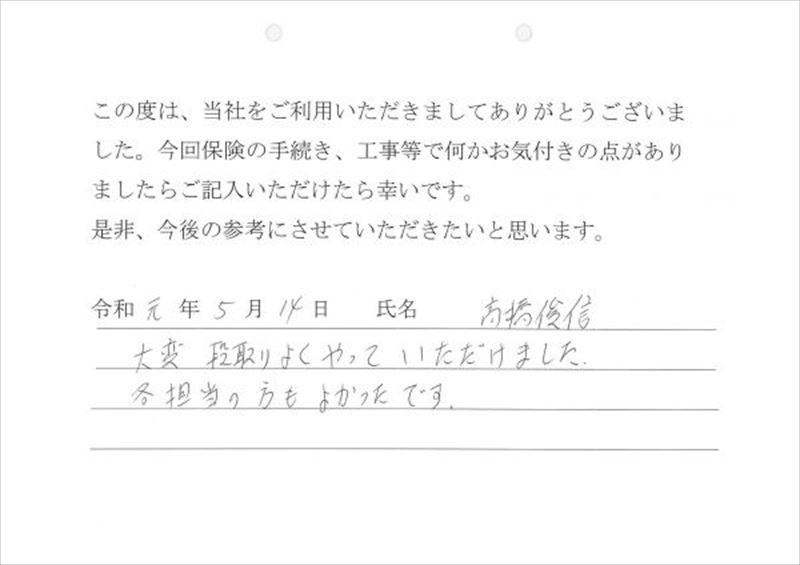 この度は、当社をご利用いただきましてありがとうございま
した。今回保険の手続き、工事等で何かお気付きの点があり
ましたらご記入いただけたら幸いです。
是非、今後の参考にさせていただきたいと思います。
令和 元 年 5 月 14 日 氏名 高橋俊信
大変 段取りよくやって いただけました.
各担当の方も よかったです.